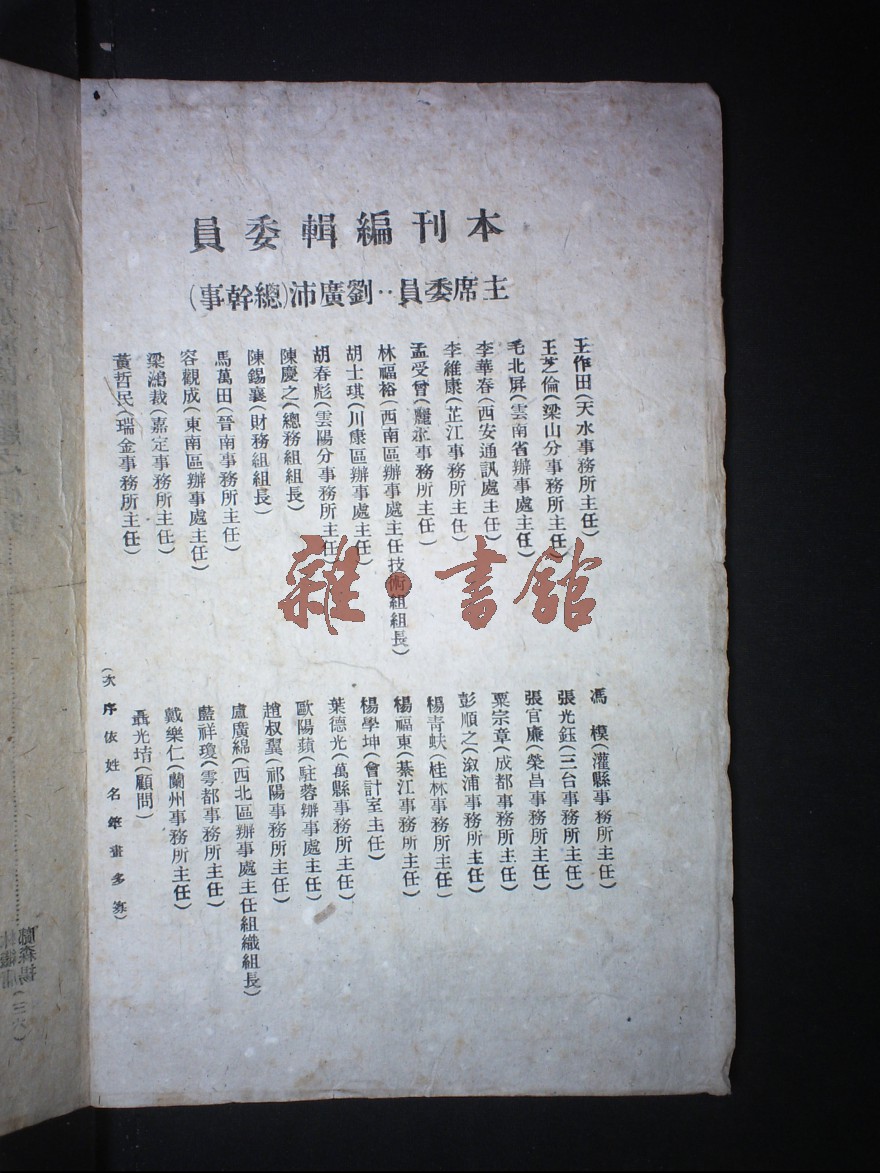 本刊編輯委員
主席委員：劉廣沛（總幹事）
王作田（天水事務所主任）
王芝倫（梁山分事務所主任）
毛北屏（雲南省辦事處主任）
李華春（西安通訊處主任）
李維康（芷江事務所主任）
孟受曾（麗水事務所主任）
林福裕（西南區辦事處主任技術組組長）
胡士琪（川康區辦事處主任）
胡春彪（雲陽分事務所主任）
陳慶之（總務組組長）
陳錫襄（財務組組長）
馬萬田（晉南事務所主任）
容觀成（東南區辦事處主任）
梁鴻裁（嘉定事務所主任）
黃哲民（瑞金事務所主任）
馮　模（灌縣事務所主任）
張光鈺（三台事務所主任）
張官廉（榮昌事務所主任）
粟宗章（成都事務所主任）
彭順之（漵浦事務所主任）
楊青蚨（桂林事務所主任）
楊福東（綦江事務所主任）
楊學坤（會計室主任）
葉德光（萬縣事務所主任）
歐陽蘋（駐蓉辦事處主任）
趙叔翼（祁陽事務所主任）
盧廣綿（西北區辦事處主任組織組長）
藍祥瓊（雩都事務所主任）
戴樂仁（蘭州事務所主任）
聶光堉（顧問）
（次序依姓名筆畫多寡）
雜・書館